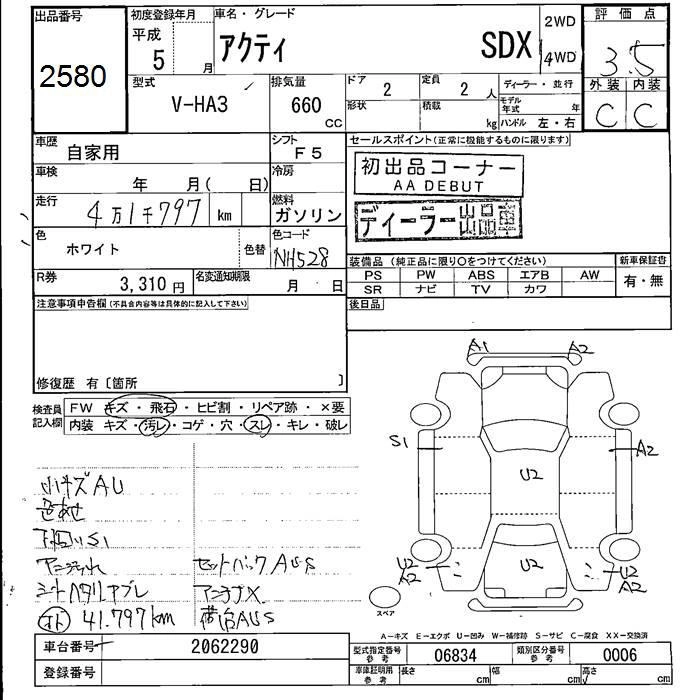 出品番号
2580
初度登録年月
平成
5
月
車名・グレード
アクティ
SDX
2WD
4WD
評価点
3.5
外装 内装
C C
型式
V-HA3
排気量
660
CC
ドア
2
定員
2
人
形状
積載
kg
ディーラー・並行
モデル年式
年
ハンドル 左・右
車歴
自家用
シフト
F5
車検
年 月( 日)
冷房
走行
4万1千797
km
燃料
ガソリン
色
ホワイト
色替
色コード
NH528
R券
3,310 円
名変通知期限
月 日
セールスポイント(正常に機能するものに限ります)
初出品コーナー
AA DEBUT
ディーラー出品車
装備品 (純正品に限り○をつけてください)
新車保証書
PS PW ABS エアB AW
SR ナビ TV カワ
有・無
後日品
注意事項申告欄(不具合内容等は具体的に記入して下さい)
修復歴 有〔箇所 〕
検査員記入欄
FW キズ・飛石・ヒビ割・リペア跡・×要
内装 キズ・汚レ・コゲ・穴・スレ・キレ・破レ
小キズAU
色あせ
下回りS1
シートヘタリ ヤブレ
41.797km
セットバックAUS
アンテナX
荷台AUS
A1
A2
S1
A2
U2
U2
U2
A2
U2
A2
スペア
A―キズ E―エクボ U―凹み W―補修跡 S―サビ C―腐食 XX―交換済
車台番号
2062290
登録番号
型式指定番号
参考
06834
類別区分番号
参考
0006
車庫証明用
参考
長さ
cm
幅
cm
高さ
cm